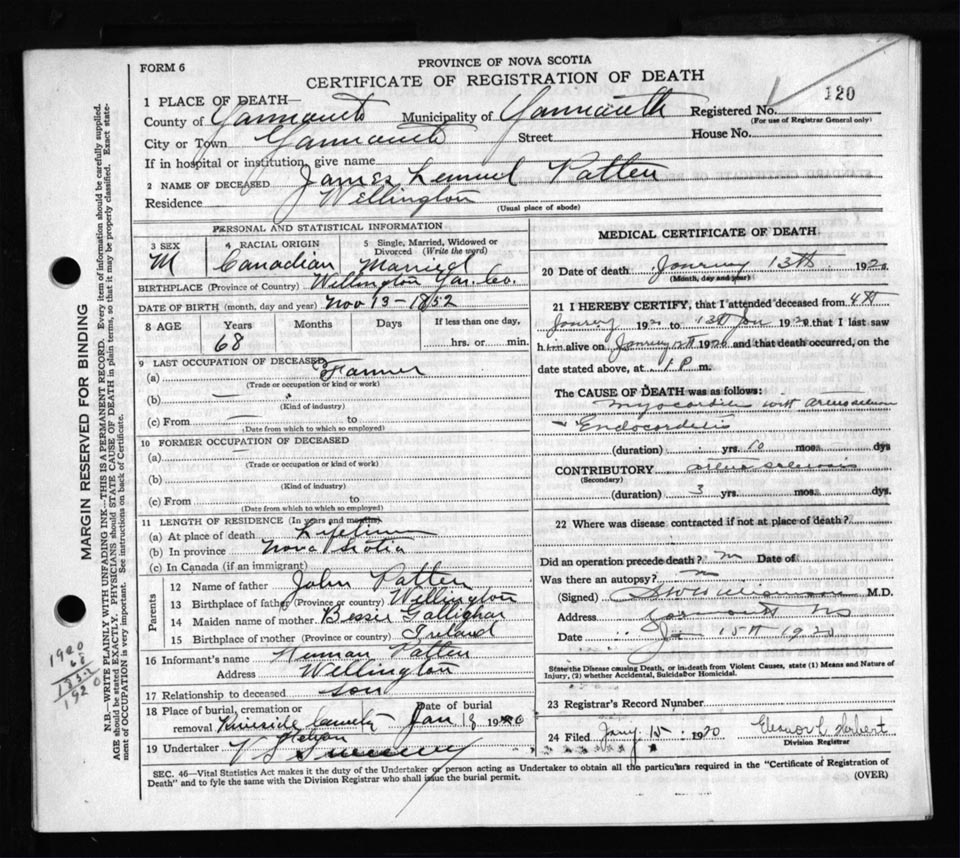 PROVINCE OF NOVA SCOTIA
FORM 6
CERTIFICATE OF REGISTRATION OF DEATH
1 PLACE OF DEATH—
County of Yarmouth Municipality of Yarmouth Registered No. 120
(For use of Registrar General only)
City or Town Yarmouth Street House No.
If in hospital or institution, give name
2 NAME OF DECEASED James Lemuel Patten
Residence Wellington
(Usual place of abode)
PERSONAL AND STATISTICAL INFORMATION
3 SEX M
4 RACIAL ORIGIN Canadian
5 Single, Married, Widowed or Divorced (Write the word) Married
BIRTHPLACE (Province or Country) Wellington Yar. Co.
DATE OF BIRTH (month, day and year) Nov 13 - 1852
8 AGE Years 68 Months Days If less than one day, hrs. or min.
9 LAST OCCUPATION OF DECEASED
(a) Farmer
(Trade or occupation or kind or work)
(b) —
(Kind of industry)
(c) From — to
(Date from which to which so employed)
10 FORMER OCCUPATION OF DECEASED
(a) —
(Trade or occupation or kind of work)
(b)
(Kind of industry)
(c) From to
(Date from which to which so employed)
11 LENGTH OF RESIDENCE (In years and months)
(a) At place of death Lifetime
(b) In province Nova Scotia
(c) In Canada (if an immigrant)
Parents
12 Name of father John Patten
13 Birthplace of father (Province or country) Wellington
14 Maiden name of mother Bessie
15 Birthplace of mother (Province or country) Ireland
16 Informant's name Patten
Address Wellington
17 Relationship to deceased son
18 Place of burial, cremation or removal Riverside Date of burial Jan 18
19 Undertaker
MEDICAL CERTIFICATE OF DEATH
20 Date of death January 13th 192
(Month, day and year)
21 I HEREBY CERTIFY, that I attended deceased from 4th
192 to 13th Jan 1920 that I last saw
h im alive on 1920 and that death occurred, on the
date stated above, at 1 P m.
The CAUSE OF DEATH was as follows:
Myocarditis with
Endocarditis
(duration) yrs. 10 mos. dys
CONTRIBUTORY
(Secondary)
(duration) 3 yrs. mos. dys.
22 Where was disease contracted if not at place of death?
Did an operation precede death? Date of
Was there an autopsy?
(Signed) M.D.
Address Yarmouth NS
Date Jan 15th 1920
State the Disease causing Death, or in death from Violent Causes, state (1) Means and Nature of
Injury, (2) whether Accidental, Suicidal or Homicidal.
23 Registrar's Record Number
24 Filed Jany 15 1920 Herbert
Division Registrar
SEC. 46—Vital Statistics Act makes it the duty of the Undertaker or person acting as Undertaker to obtain all the particulars required in the "Certificate of Registration of
Death" and to fyle the same with the Division Registrar who shall issue the burial permit. (OVER)
MARGIN RESERVED FOR BINDING
N.B.—WRITE PLAINLY WITH UNFADING INK—THIS IS A PERMANENT RECORD. Every item of information should be carefully supplied.
AGE should be stated EXACTLY. PHYSICIANS should STATE CAUSE OF DEATH in plain terms, so that it may be properly classified. Exact state-
ment of OCCUPATION is very important. See instructions on back of Certificate.
1920
68
1852
1920